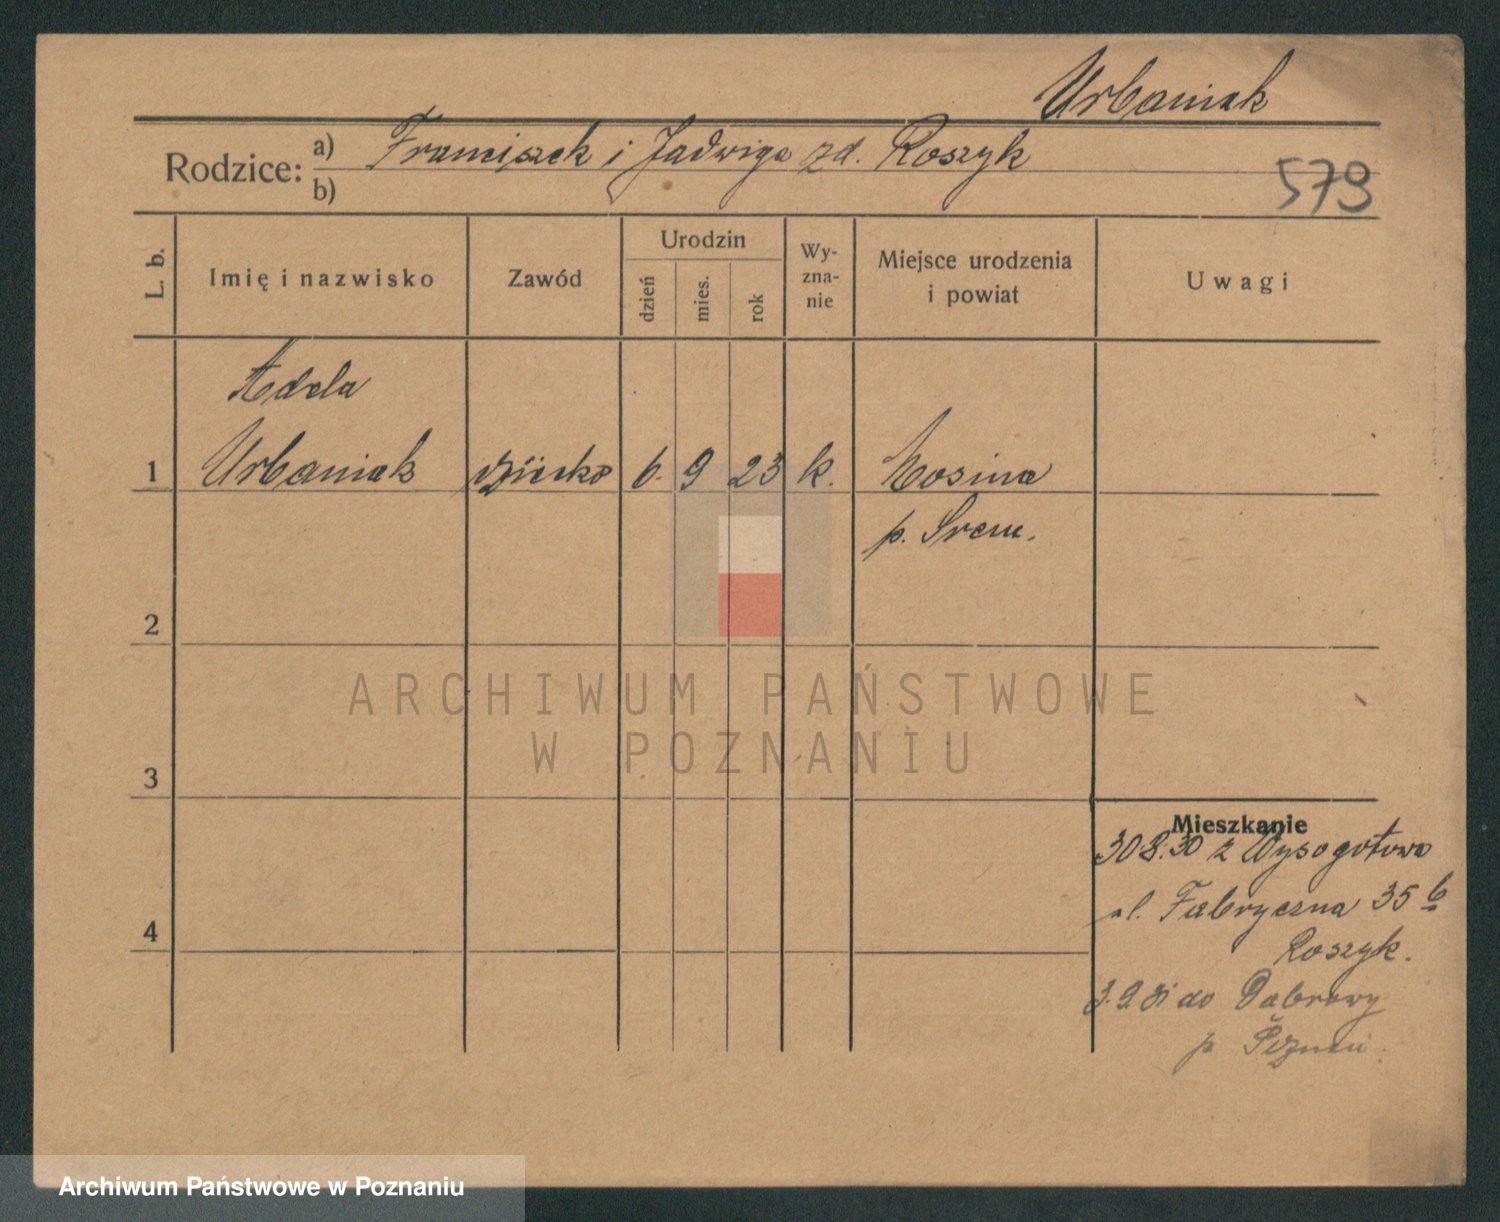 Urbaniak
Rodzice: a) Franciszek i Jadwiga zd. Roszyk
b)
579
L. b.
Imię i nazwisko
Zawód
Urodzin
dzień
mies.
rok
Wy-
zna-
nie
Miejsce urodzenia
i powiat
Uwagi
Adela
1 Urbaniak dziecko 6. 9 23 k. Mosina
p. Śrem.
2
3
4
ARCHIWUM PAŃSTWOWE
W POZNANIU
Mieszkanie
30.8.30 z Wysogotowo
ul. Fabryczna 35 b
Roszyk.
3.9.31 do Dabrowy
p
Archiwum Państwowe w Poznaniu